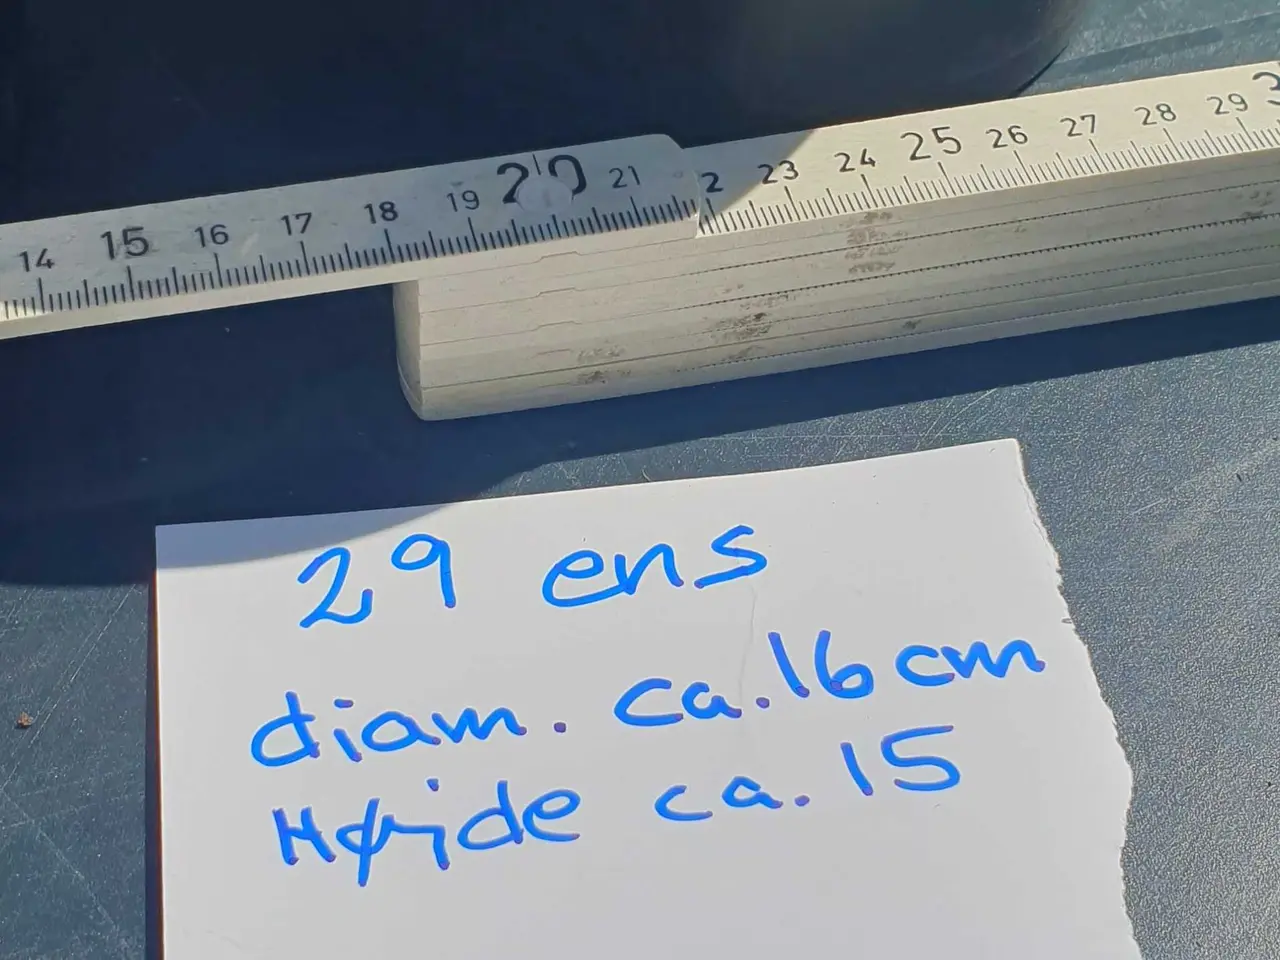 14 15 16 17 18 19 20 21 2 23 24 25 26 27 28 29 3
29 ens
diam. ca. 16 cm
Højde ca. 15